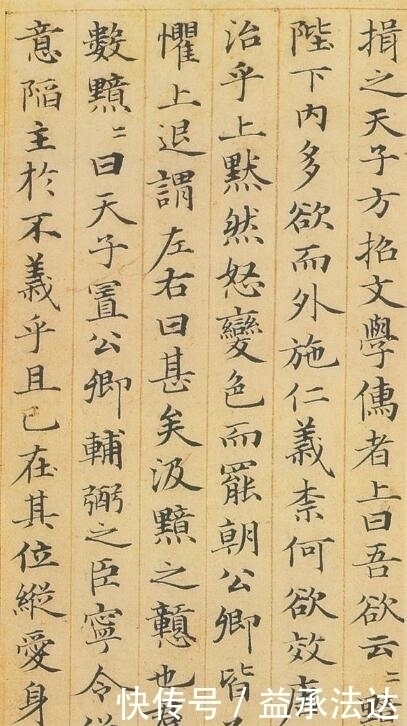 揖之天子方招文學儒者上曰吾欲云二
陛下內多欲而外施仁義柰何欲效
治乎上默然怒變色而罷朝公卿皆
懼上退謂左右曰甚矣汲黯之戇也
數黯二曰天子置公卿輔弼之臣寧令
意陷主於不義乎且已在其位縱愛身
快传号 / 益承法达